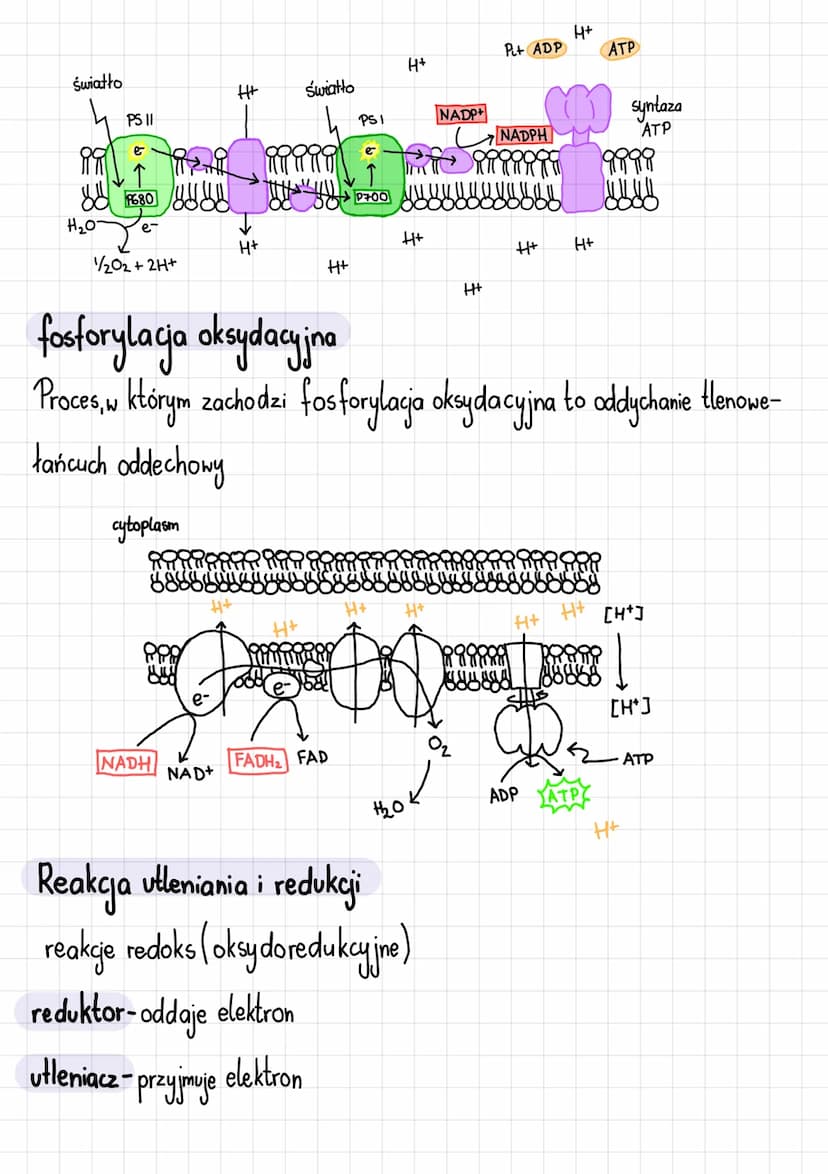 H+
Pi+ ADP ATP
H+
światło
H+
światło
PS II
PS I
NADP+
NADPH
syntaza
ATP
e-
e-
P680
P700
H₂O
e-
½O₂ + 2H+
H+
H+
H+
H+
H+
H+
fosforylacja oksydacyjna
Proces, w którym zachodzi fosforylacja oksydacyjna to oddychanie tlenowe-
łańcuch oddechowy
cytoplasm
H+ H+ H+ H+ H+ H+ [H+]
e-
e-
[H+]
NADH NAD+ FADH₂ FAD
O₂
ATP
H₂O
ADP ATP
H+
Reakcja utleniania i redukcji
reakcje redoks (oksydoredukcyjne)
reduktor-oddaje elektron
utleniacz-przyjmuje elektron